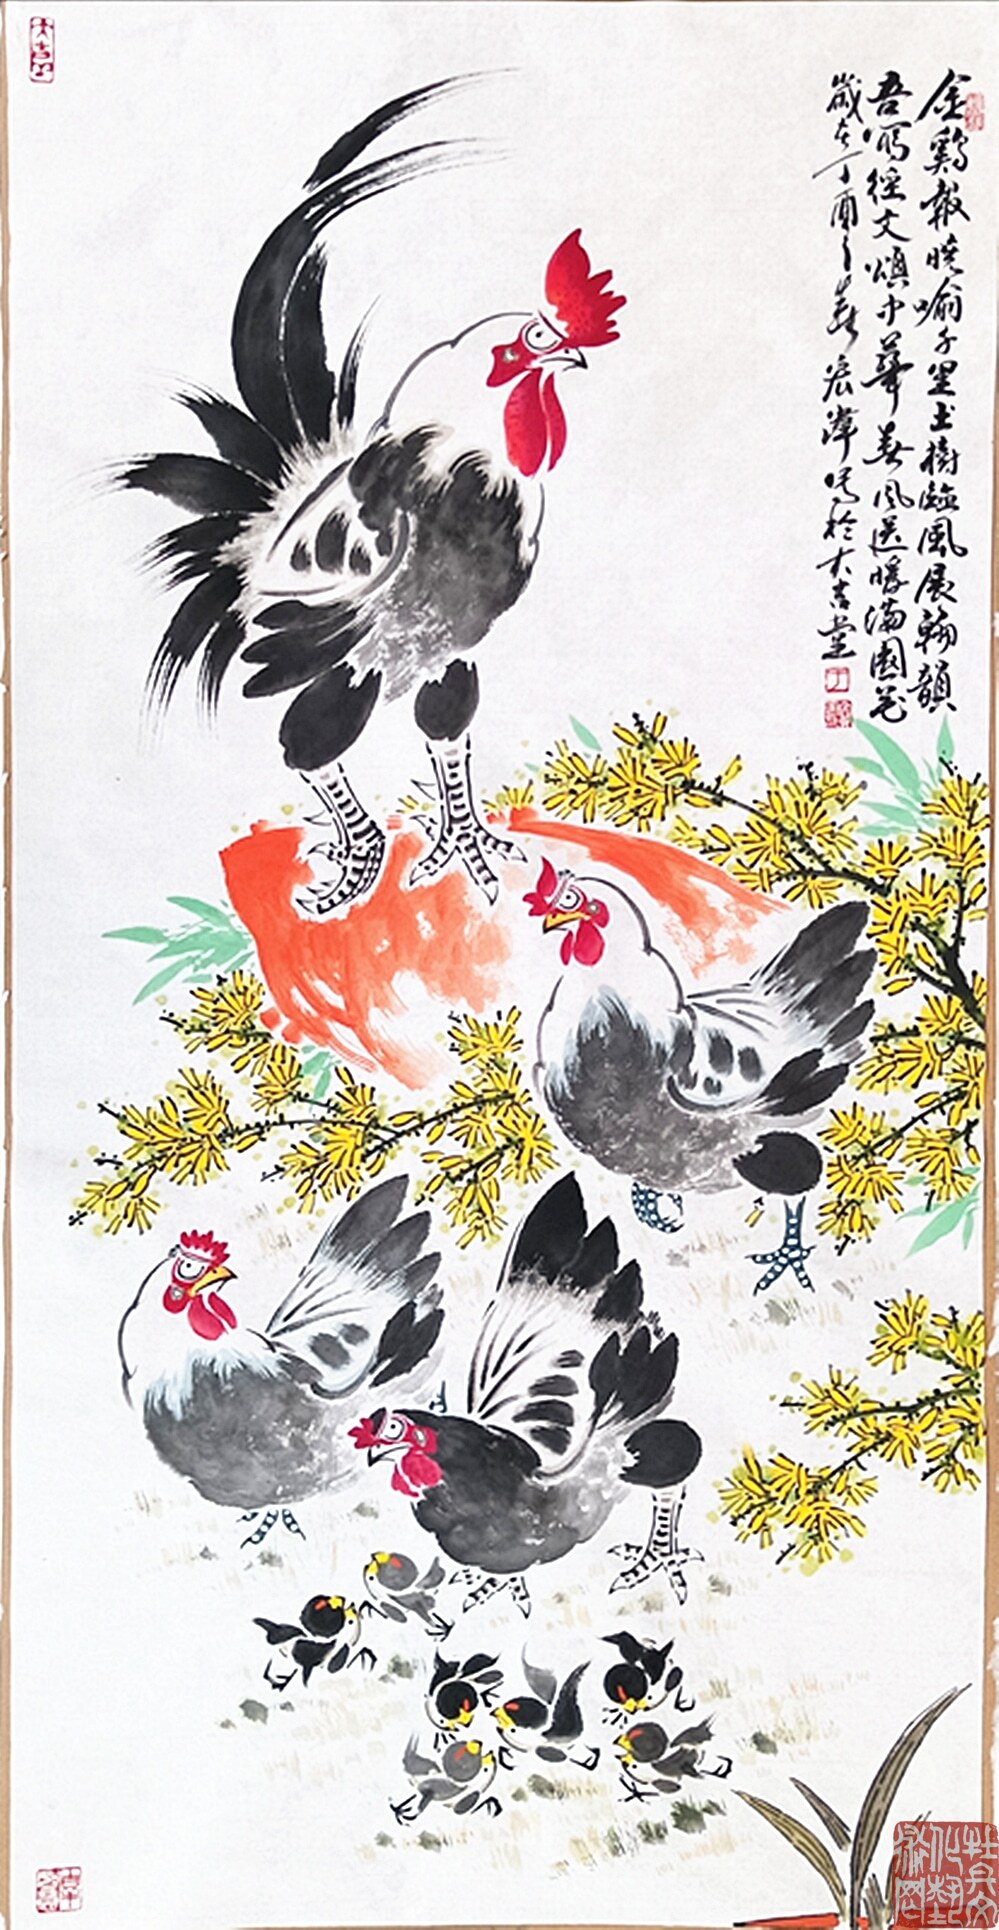 金鷄報曉喻千里玉樹臨風展翰韻
吾寫徑文頌中華春風送暖滿園花
歲在丁酉之春宏寫於大吉堂
牡丹文
化藝
術网